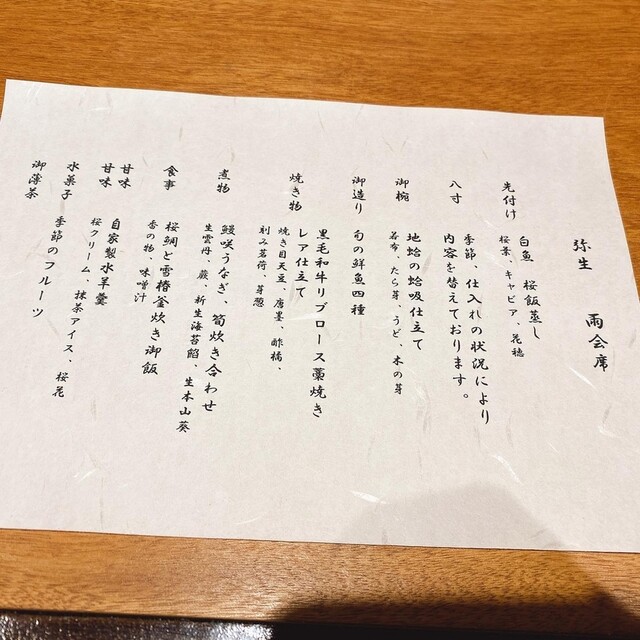 弥生　雨会席
先付け　白魚　桜飯蒸し
桜葉、キャビア、花穂
八寸　季節、仕入れの状況により
内容を替えております。
御椀　地蛤の蛤吸仕立て
若布、たら芽、うど、木の芽
御造り　旬の鮮魚四種
焼き物　黒毛和牛リブロース藁焼き
レア仕立て
焼き目天豆、唐墨、酢橘、
刻み茗荷、芽葱
煮物　鰻咲うなぎ、筍炊き合わせ
生雲丹、蕨、新生海苔餡、生本山葵
食事　桜鯛と雪椿釜炊き御飯
香の物、味噌汁
甘味　自家製水羊羹
甘味　桜クリーム、抹茶アイス、桜花
水菓子　季節のフルーツ
御薄茶